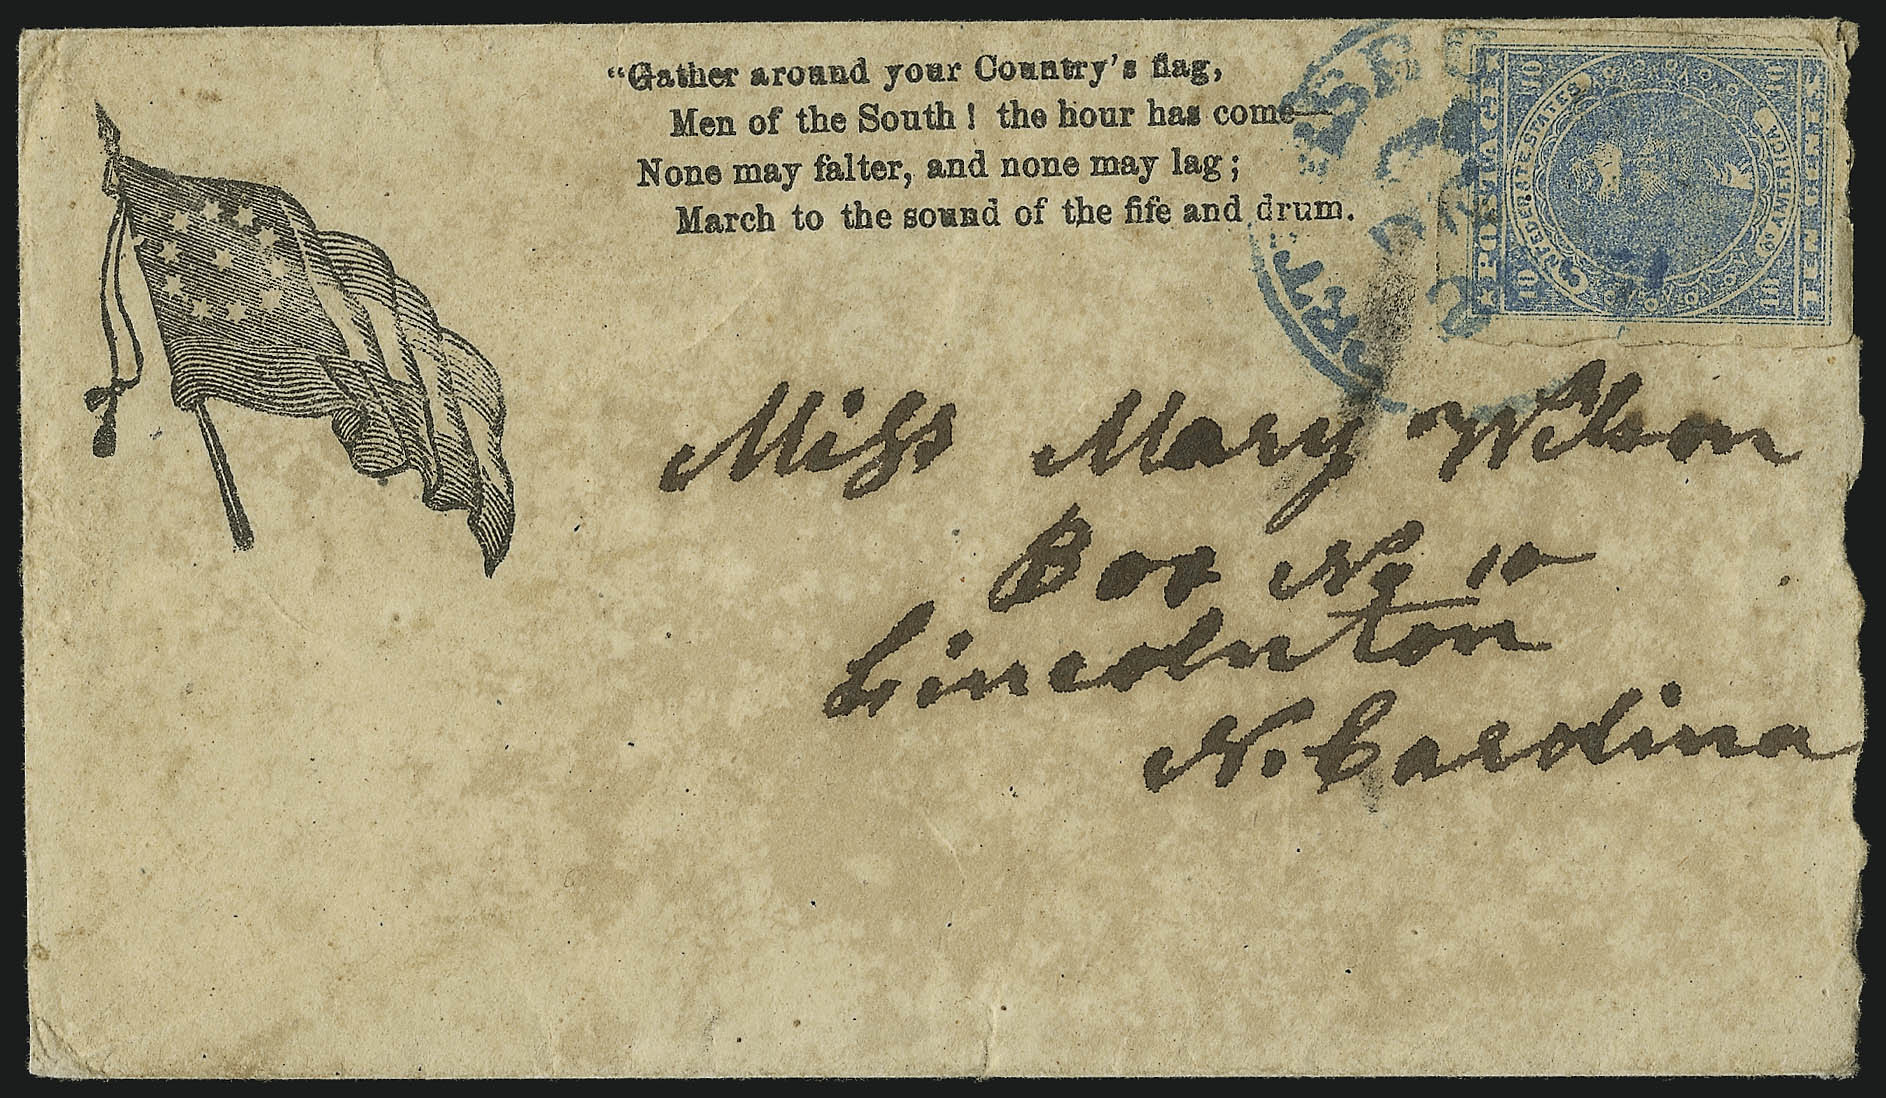 “Gather around your Country's flag,
Men of the South! the hour has come—
None may falter, and none may lag;
March to the sound of the fife and drum.
POSTAGE
CONFEDERATE STATES
OF AMERICA
TEN CENTS
10 10
10 10
Miss Mary Wilson
Box No 10
Lincolnton
N. Carolina